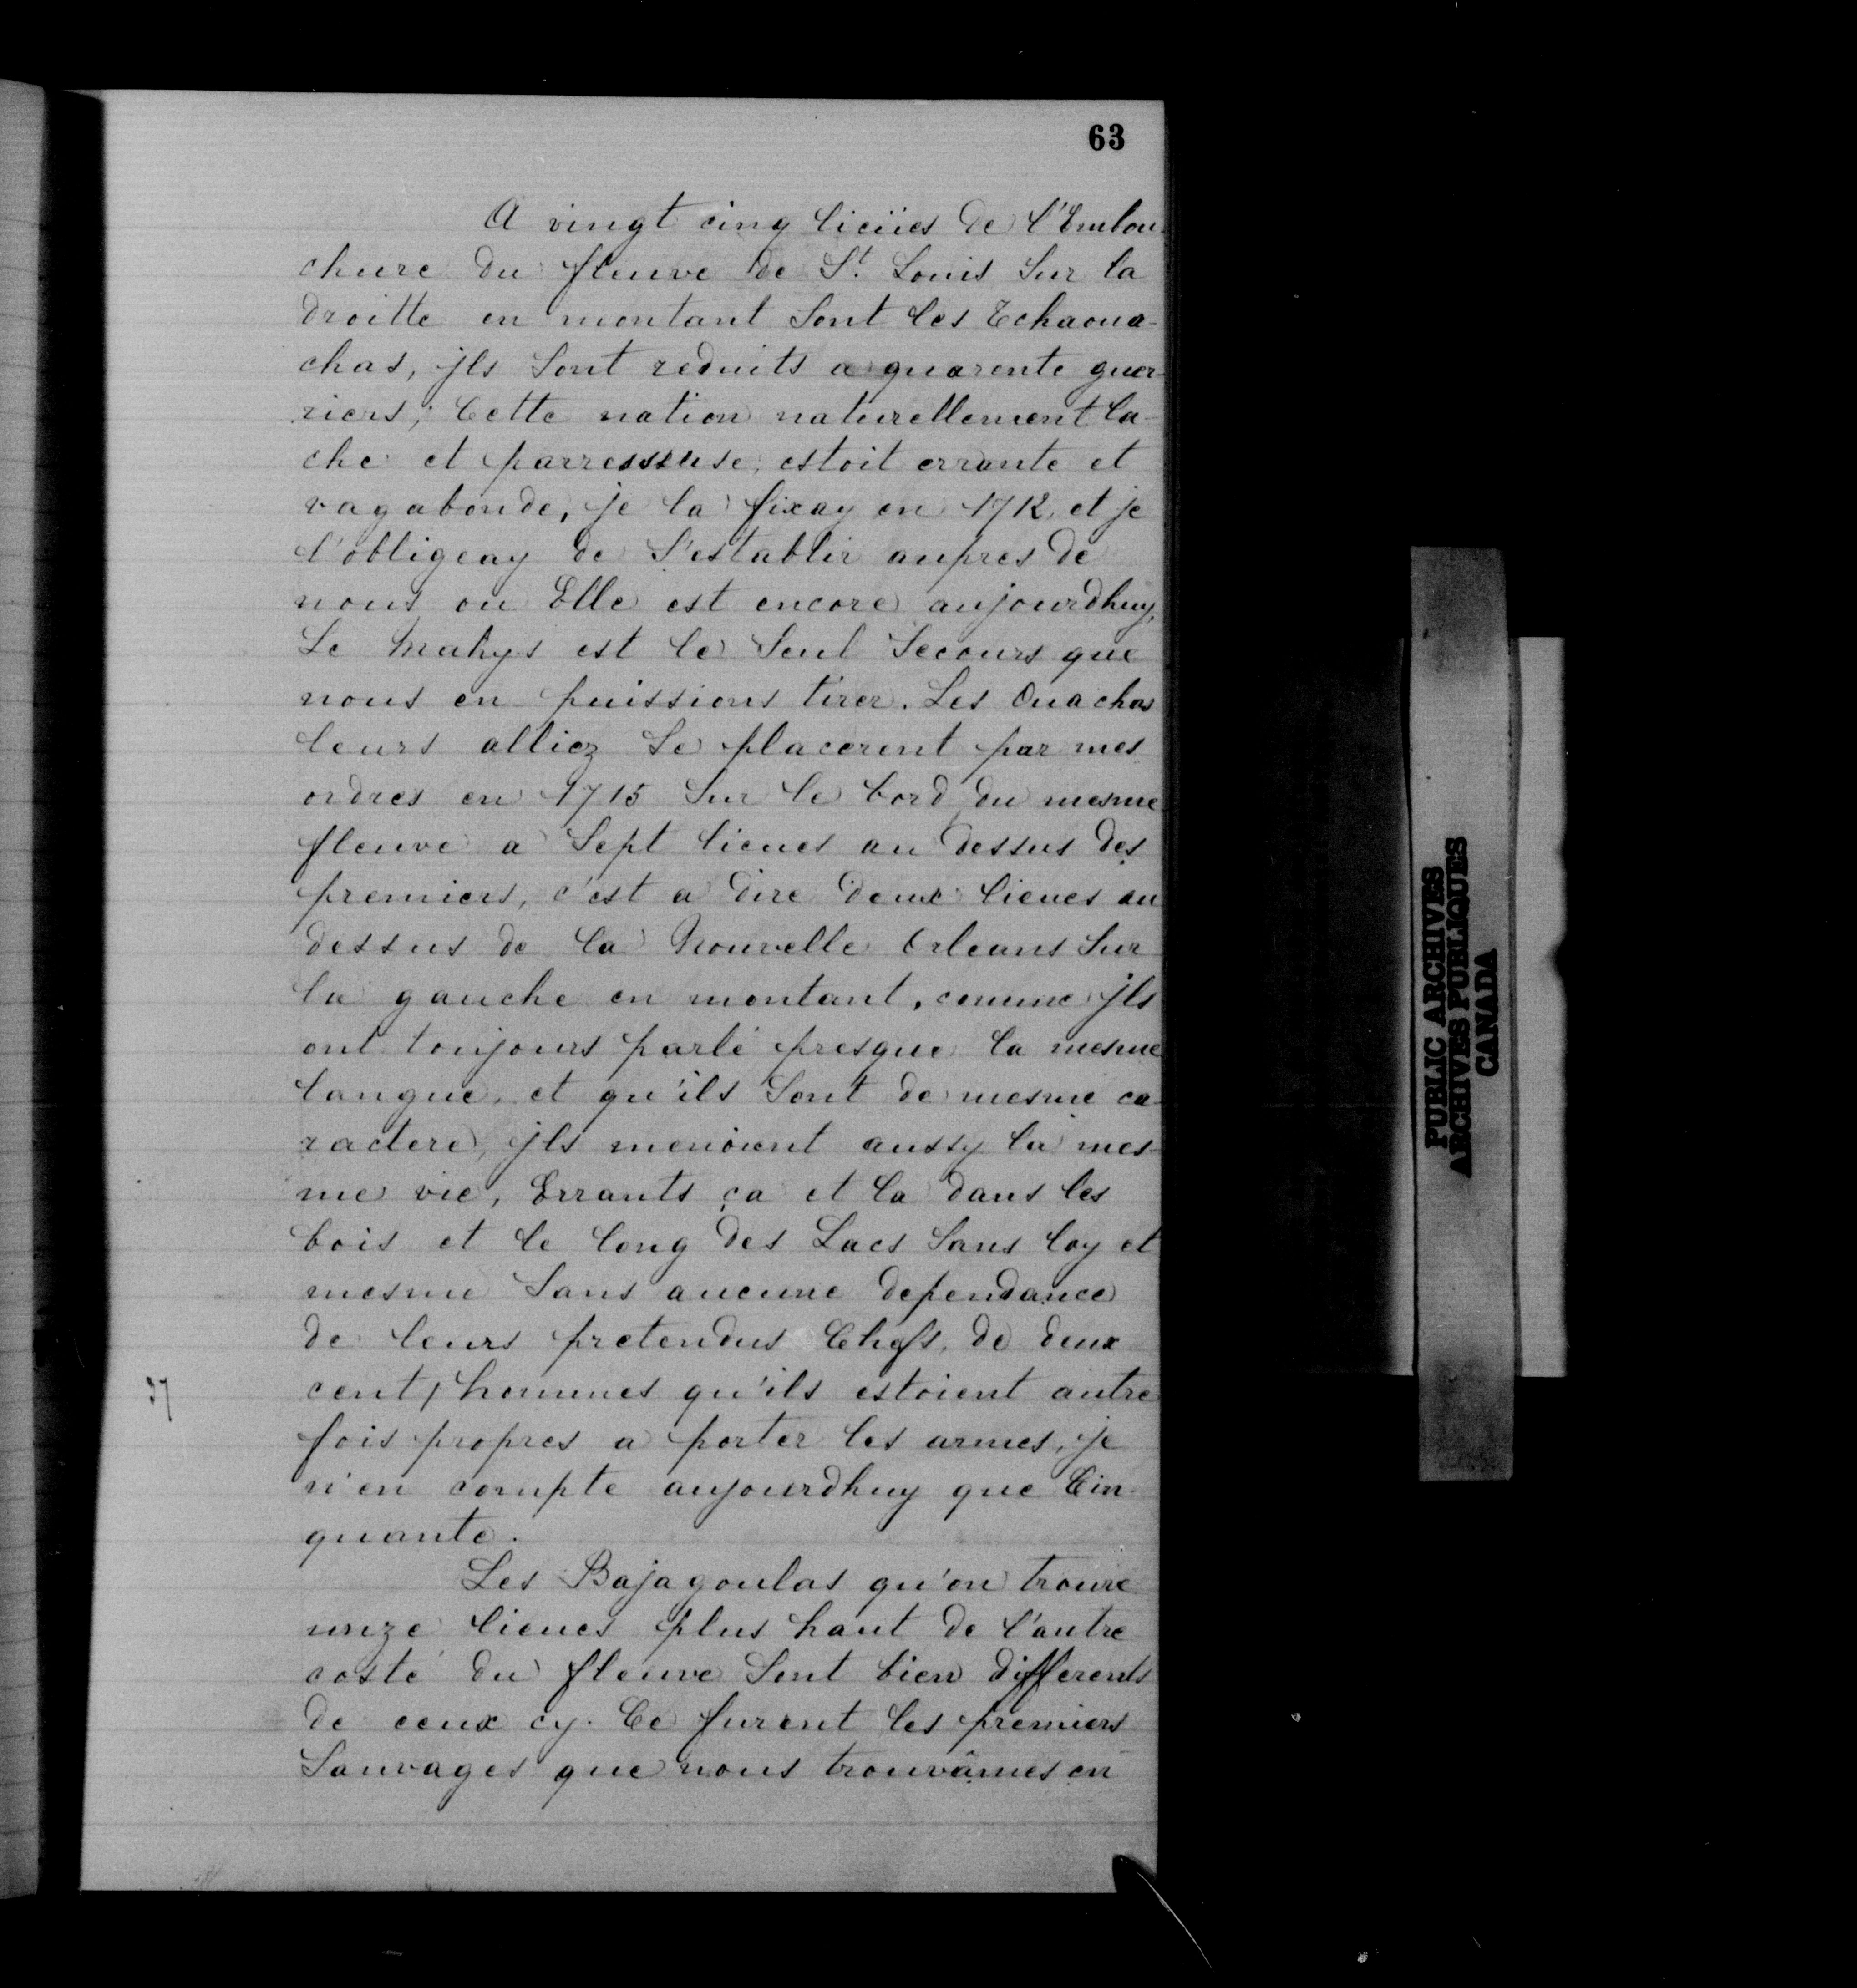 63
A vingt cinq lieües de l'Embou
chure du fleuve de St. Louis Sur la
droitte en montant Sont les Tchaoua-
chas, jls Sont reduits a quarente guer-
riers; Cette nation naturellement la-
che et parresseuse, estoit errante et
vagabonde, je la fixay en 1712, et je
l'obligeay de S'establir aupres de
nous ou Elle est encore aujourdhuy,
Le Mahys est le Seul Secours que
nous en puissions tirer. Les Ouachas
leurs alliez Se placerent par mes
ordres en 1715 Sur le bord du mesme
fleuve a Sept lieues au dessus des
premiers, c'est a dire deux lieues au
dessus de la Nouvelle Orleans Sur
la gauche en montant, comme jls
ont toujours parlé presque la mesme
langue, et qu'ils Sont de mesme ca-
ractere, jls menoient aussy la mes-
me vie, Errants ça et la dans les
bois et le long des Lacs Sans loy et
mesme Sans aucune dependance
de leurs pretendus Chefs, de deux
37
cent, hommes qu'ils estoient autre
fois propres a porter les armes, je
n'en compte aujourdhuy que Cin-
quante.
Les Bajagoulas qu'on trouve
unze lieues plus haut de l'autre
costé du fleuve Sont bien differents
de ceux cy. Ce furent les premiers
Sauvages que nous trouvâmes en
PUBLIC ARCHIVES
ARCHIVES PUBLIQUES
CANADA